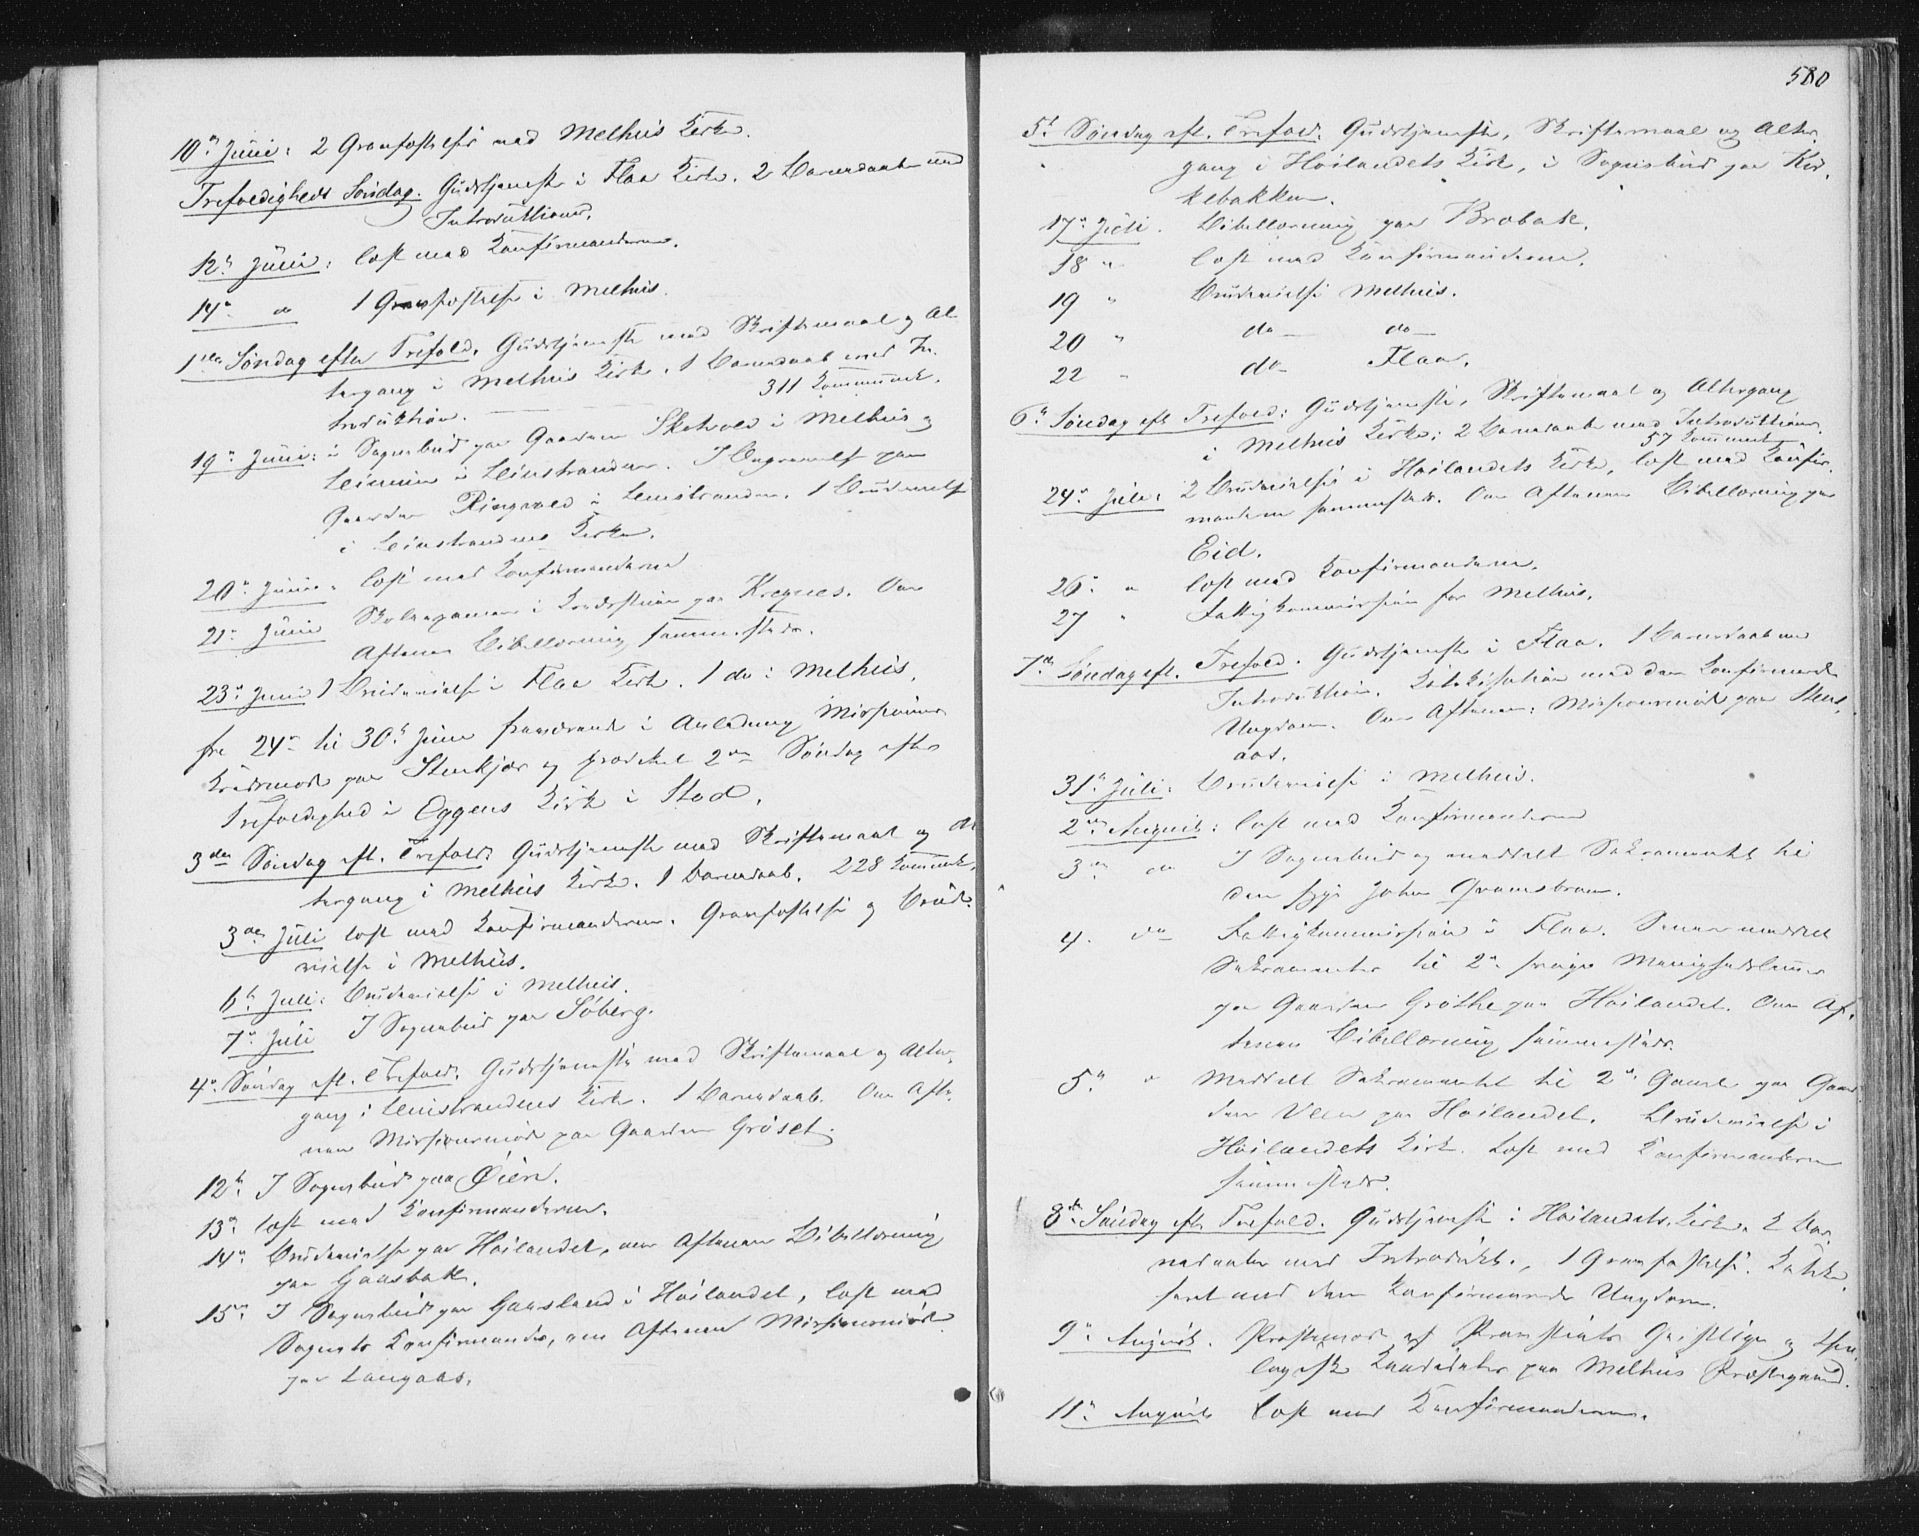 10de Juni: 2 Gravfæstelser ved Melhus Kirke.
Trefoldigheds Søndag. Gudstjeneste i Flaa Kirke. 2 Barnedaab med
Introduktioner.
12te Juni: læst med Konfirmanderne.
14de do 1 Gravfæstelse i Melhus.
1ste Søndag efter Trefold. Gudstjeneste med Skriftemaal og Al-
tergang i Melhus Kirke. 1 Barnedaab med In-
troduktion. 311 Kommunik.
19de Juni: i Sognebud paa Gaarden Skjetvold i Melhus og
i Leinstranden. I
Gaarden Ringvold i Leinstranden. 1 Brudevielse
i Leinstrandens Kirke.
20de Juni: læst med Konfirmanderne
21de Juni Skoleexamen i paa Kregnes. Om
Aftenen Bibellæsning sammesteds.
23de Juni 1 Brudevielse i Flaa Kirke. 1 do i Melhus.
fra 24de til 30te Juni fraværende i Anledning Missions
Kredsmøde paa Stenkjær og prædiket 2den Søndag efter
Trefoldighed i Eggens Kirke i Stod.
3die Søndag eft. Trefold: Gudstjeneste med Skriftemaal og Al
tergang i Melhus Kirke. 1 Barnedaab. 228 Kommunik.
3die Juli læst med Konfirmanderne. Gravfæstelse og Brude-
vielse i Melhus.
6te Juli: Brudevielse i Melhus.
7de Juli I Sognebud paa Søberg.
4de Søndag eft. Trefold. Gudstjeneste med Skriftemaal og Alter-
gang i Leinstrandens Kirke. 1 Barnedaab. Om Afte-
nen Missionsmøde paa Gaarden Grøset.
12te I Sognebud paa Øien.
13de læst med Konfirmanderne.
14de Brudevielse paa Høilandet, om Aftenen Bibellæsning
paa Gaasbak.
15de I Sognebud paa Gaasland i Høilandet, læst med
Sognets Konfirmander, om Aftenen Missionsmøde
paa Langaas.
580
5te Søndag eft. Trefold. Gudstjeneste, Skriftemaal og Alter-
gang i Høilandets Kirke, i Sognebud paa Kir-
kebakken.
17de Juli. Bibellæsning paa Brobak.
18 " læst med Konfirmanderne.
19 " Brudevielse Melhus.
20 " do do
22 " do Flaa.
6te Søndag eft Trefold: Gudstjeneste, Skriftemaal og Altergang
i Melhus Kirke; 2 Barnedaab med Introduktioner.
57 Kommunik
24de Juli: 2 Brudevielser i Høilandets Kirke, læst med Konfir-
manderne sammesteds. Om Aftenen Bibellæsning paa
Eid.
26de " læst med Konfirmanderne.
27 " Fattigkommission for Melhus.
7de Søndag eft. Trefold. Gudstjeneste i Flaa. 1 Barnedaab med
Introduktion. Katekisation med den konfirmerede
Ungdom. Om Aftenen: Missionsmøde paa
aas.
31te Juli: Brudevielse i Melhus.
2den August: læst med Konfirmanderne
3die do I Sognebud og meddelt Sakramentet til
den syge John Qvamsbroen.
4. do Fattigkommission i Flaa. Senere meddelt
Sakramentet til 2de svage Menighedslemmer
paa Gaarden Grøthe paa Høilandet. Om Af-
tenen Bibellæsning sammesteds.
5te " Meddelt Sakramentet til 2de Gamle paa Gaar
den Veen paa Høilandet. Brudevielse i
Høilandets Kirke. Læst med Konfirmanderne
sammesteds.
8de Søndag eft. Trefold. Gudstjeneste i Høilandets Kirke. 2 Bar-
nedaaber med Introdukt., 1 Gravfæstelse. Kateki-
seret med den konfirmerede Ungdom.
9de August. Præstemøde af Provstiets Geistlige og theo-
logiske Kandidater paa Melhus Præstegaard.
11te August læst med Konfirmanderne.